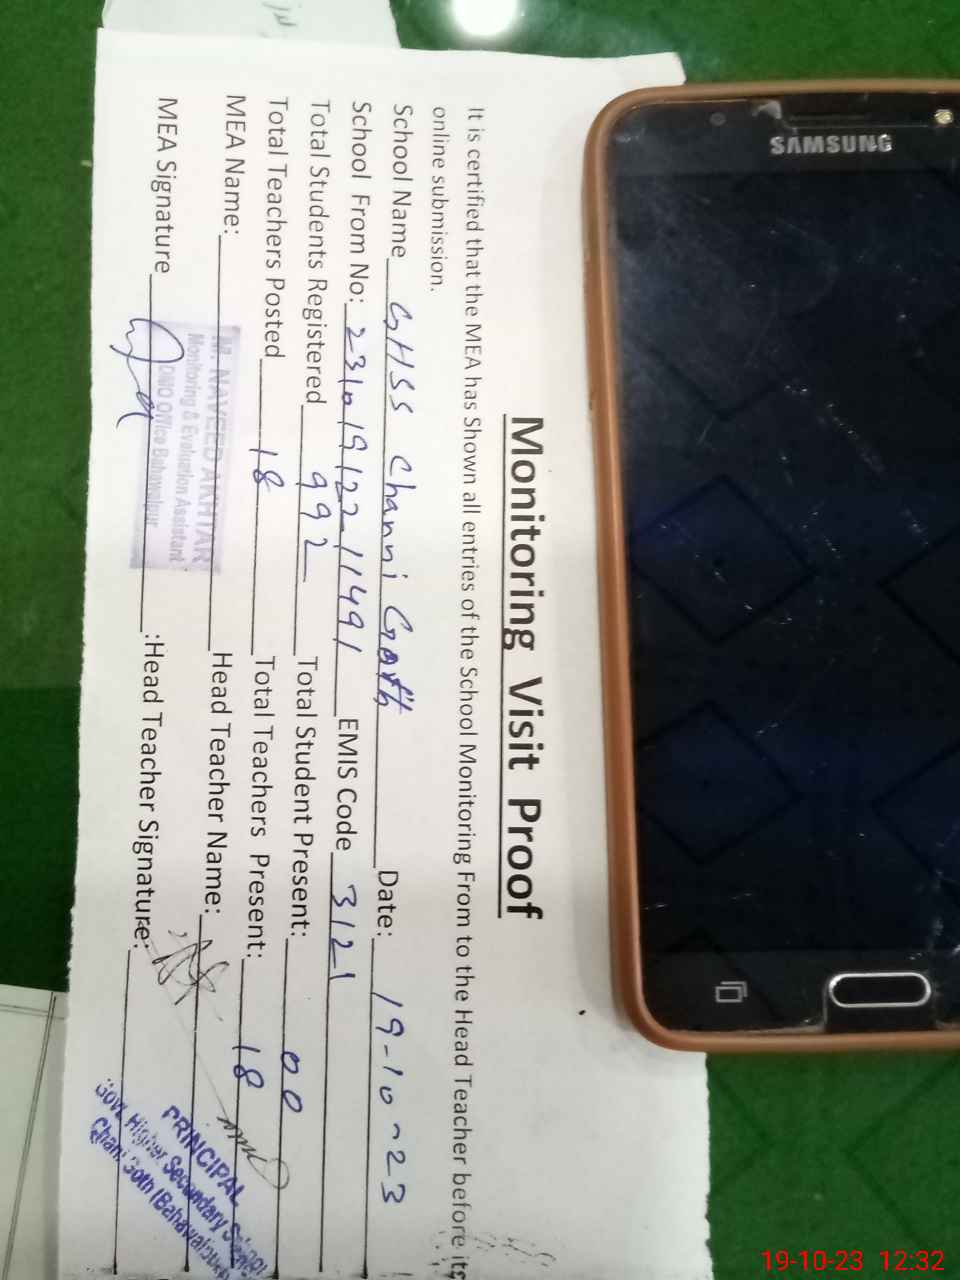 Monitoring Visit Proof
It is certified that the MEA has Shown all entries of the School Monitoring From to the Head Teacher before its
online submission.
School Name GHSS Channi Goth Date: 19-10-23
School From No: 23101912211491 EMIS Code 3121
Total Students Registered 992 Total Student Present: 00
Total Teachers Posted 18 Total Teachers Present: 18
MEA Name: Head Teacher Name:
M. NAVEED AKHTAR
Monitoring & Evaluation Assistant
DMO Office Bahawalpur
MEA Signature :Head Teacher Signature:
PRINCIPAL
Govt. Higher Secondary School
Chani Goth (Bahawalpur)
SAMSUNG
19-10-23 12:32